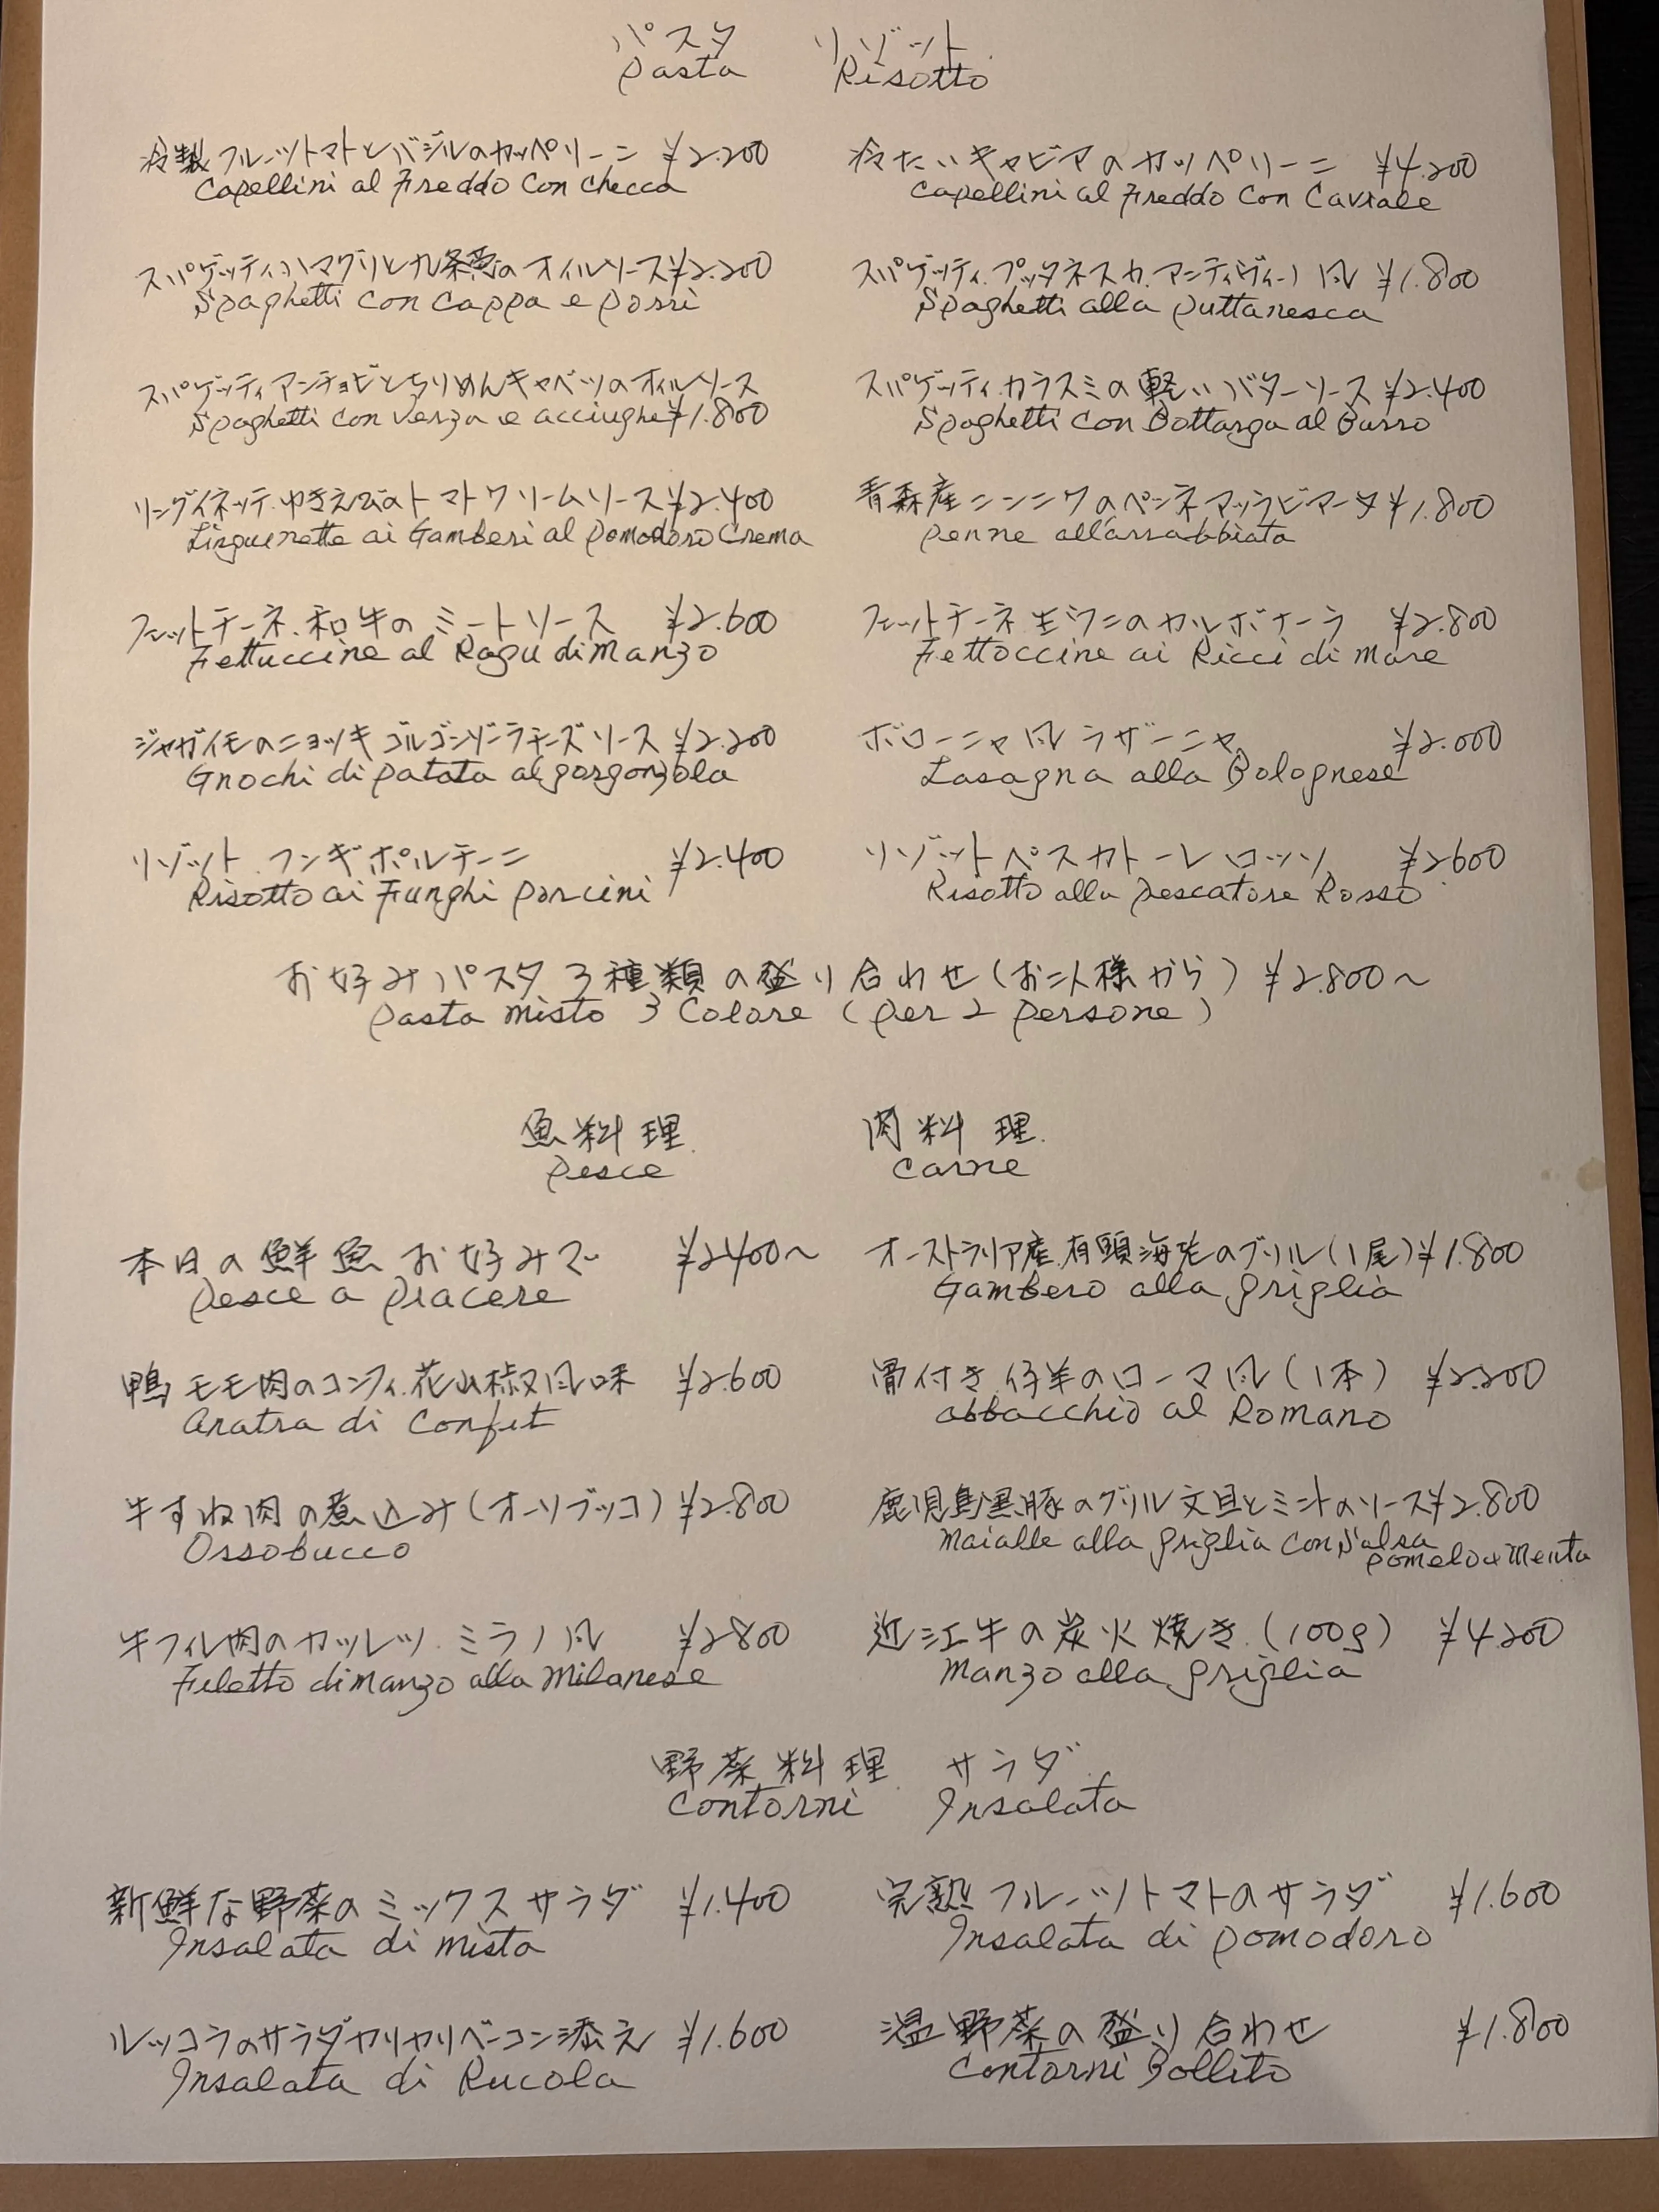 パスタ リゾット
Pasta Risotto
冷製フルーツトマトとバジルのカッペリーニ ¥2.200
Capellini al Freddo Con Checca
冷たいキャビアのカッペリーニ ¥4.200
Capellini al Freddo Con Caviale
スパゲッティハマグリと九条葱のオイルソース¥2.200
Spaghetti con Cappa e porri
スパゲッティ.プッタネスカ.アンティヴィーノ風 ¥1.800
Spaghetti alla puttanesca
スパゲッティアンチョビとちりめんキャベツのオイルソース
Spaghetti con Verza e acciughe¥1.800
スパゲッティ.カラスミの軽いバターソース¥2.400
Spaghetti Con Bottarga al Burro
リングイネッテ.ゆきえびのトマトクリームソース¥2.400
Linguenette ai Gamberi al Pomodoro Crema
青森産ニンニクのペンネアッラビアータ¥1.800
Penne all'arrabbiata
フェットチーネ.和牛のミートソース ¥2.600
Fettuccine al Ragu di Manzo
フェットチーネ.生ウニのカルボナーラ ¥2.800
Fettoccine ai Ricci di Mare
ジャガイモのニョッキゴルゴンゾーラチーズソース ¥2.200
Gnochi di patata al gorgonzola
ボローニャ風ラザーニャ ¥2.000
Lasagna alla Bolognese
リゾット.フンギポルチーニ ¥2.400
Risotto ai Funghi porcini
リゾットペスカトーレロッソ ¥2600
Risotto alla pescatore Rosso
お好みパスタ3種類の盛り合わせ(お二人様から) ¥2.800〜
Pasta Misto 3 Colore (per 2 persone)
魚料理 肉料理
Pesce Carne
本日の鮮魚お好みで ¥2400〜
Pesce a Piacere
オーストラリア産.有頭海老のグリル(1尾)¥1.800
Gambero alla griglia
鴨モモ肉のコンフィ.花山椒風味 ¥2.600
Anatra di Confit
骨付き仔羊のローマ風(1本) ¥2.200
abbacchio al Romano
牛すね肉の煮込み(オーソブッコ)¥2.800
Ossobucco
鹿児島黒豚のグリル文旦とミントのソース¥2.800
Maialle alla griglia Con Salsa
pomelo e Menta
牛フィレ肉のカツレツ.ミラノ風 ¥2800
Filetto di Manzo alla Milanese
近江牛の炭火焼き.(100g) ¥4.200
Manzo alla griglia
野菜料理 サラダ
Contorni Insalata
新鮮な野菜のミックスサラダ ¥1.400
Insalata di mista
完熟フルーツトマトのサラダ ¥1.600
Insalata di pomodoro
ルッコラのサラダカリカリベーコン添え ¥1.600
Insalata di Rucola
温野菜の盛り合わせ ¥1.800
Contorni Bollito